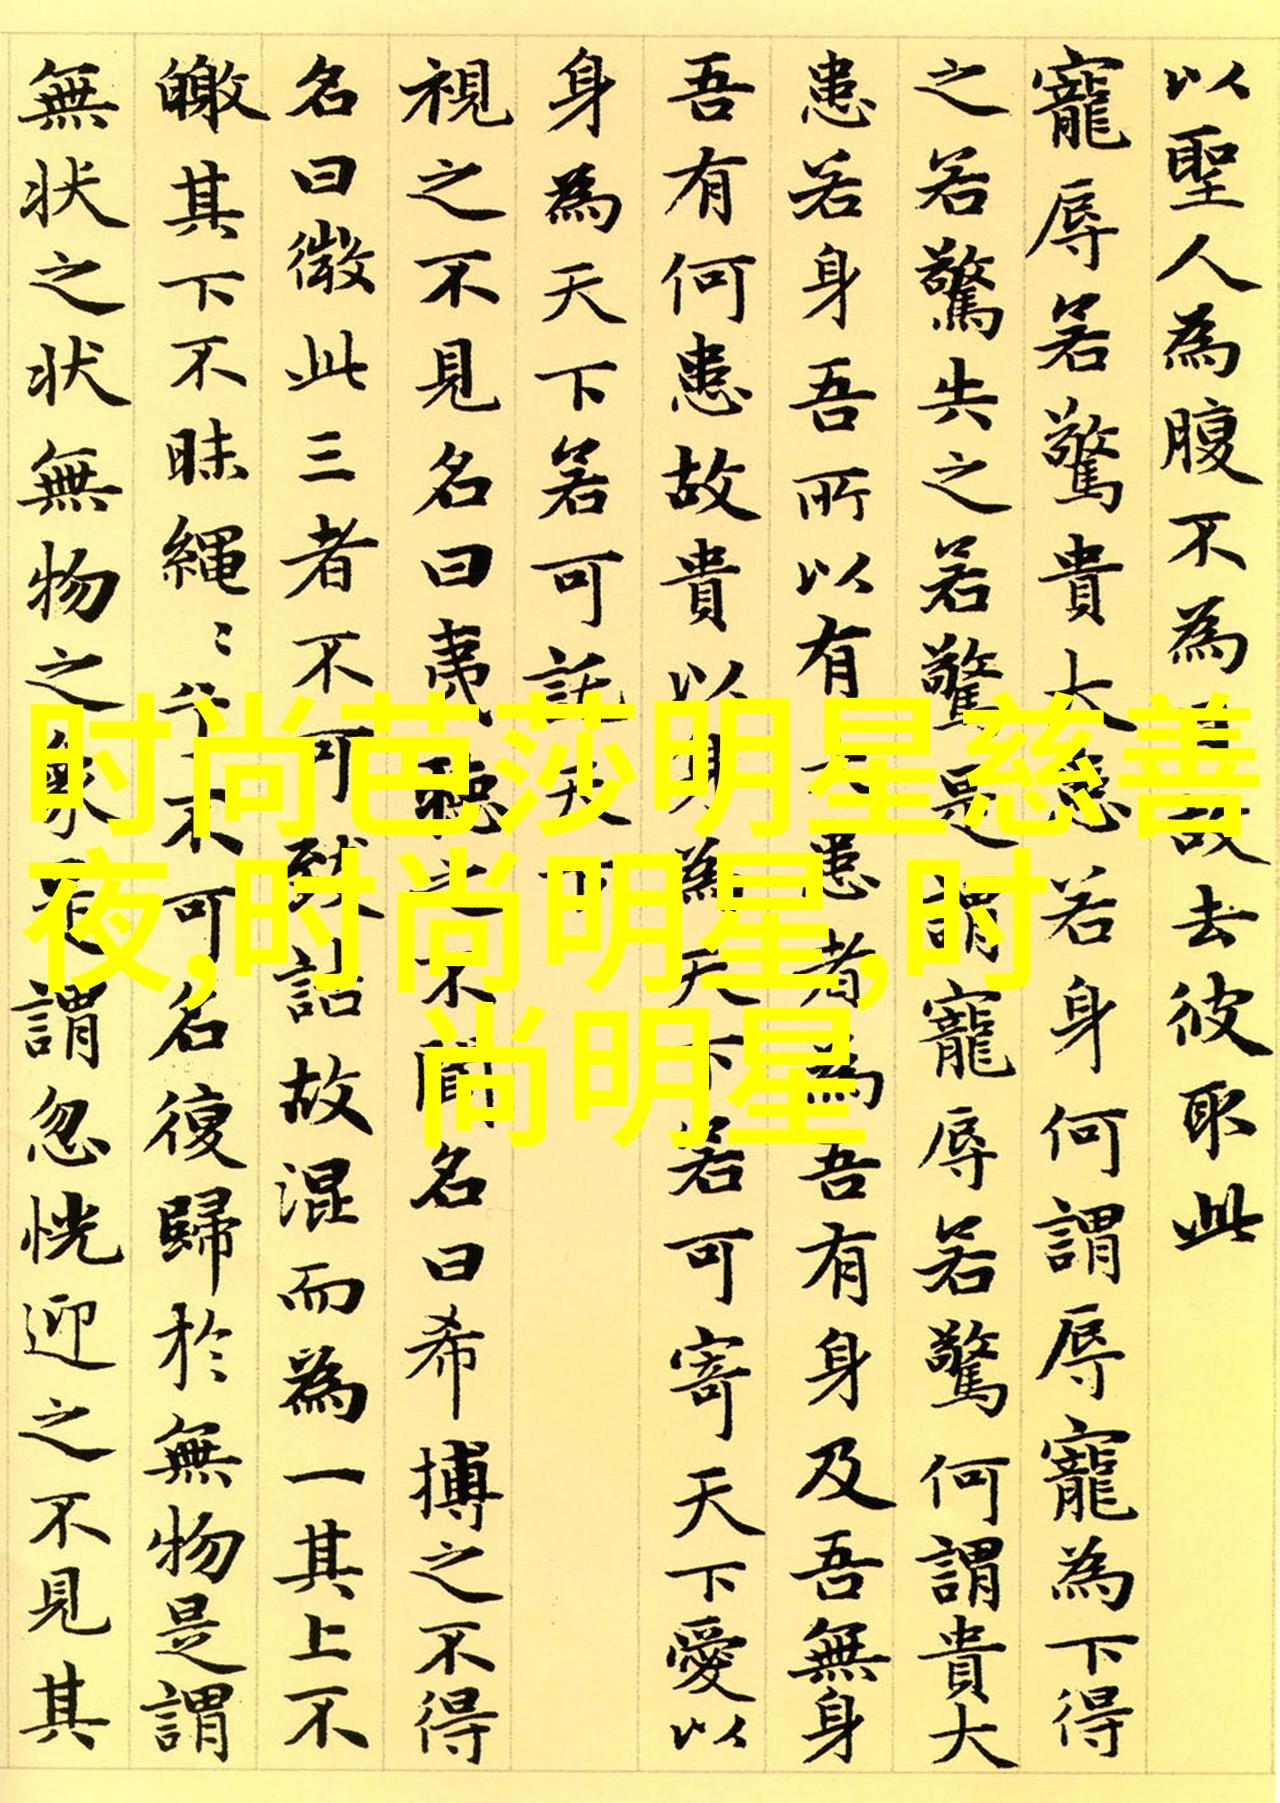 以聖人為腹不為故去彼取此
寵辱若驚貴大患若身何謂辱寵為下得
之若驚失之若驚是謂寵辱若驚何謂貴大
患若身吾所以有大患者為吾有身及吾無身
吾有何患故貴以身為天下若可寄天下愛以
身為天下若可託天下
視之不見名曰夷聽之不聞名曰希搏之不得
名曰微此三者不可致詰故混而為一其上不
皦其下不昧繩〻兮不可名復歸於無物是謂
無状之状無物之象是謂忽恍迎之不見其
时尚芭莎明星慈善
夜,时尚明星,时
尚明星